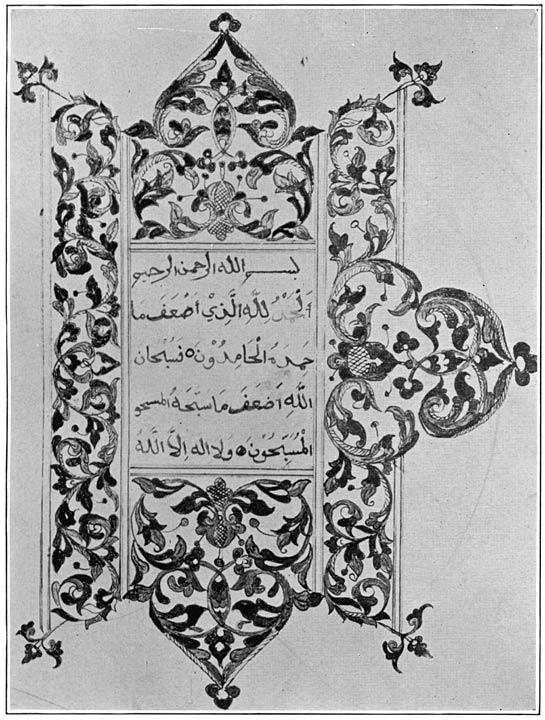 بسم الله الرحمن الرحيم
اَلْحَمْدُ لِلّهِ الَّذِيْ اَضْعَفَ مَا
حمدهُ الْحَامِدُوْنَ ه فَسُبْحَان
اللهِ اَضْعَفَ مَا سبّحَهُ المسبحو
الْمُسَبِّحُوْنَ ه وَلا اله اِلاَّ اللَّهُ